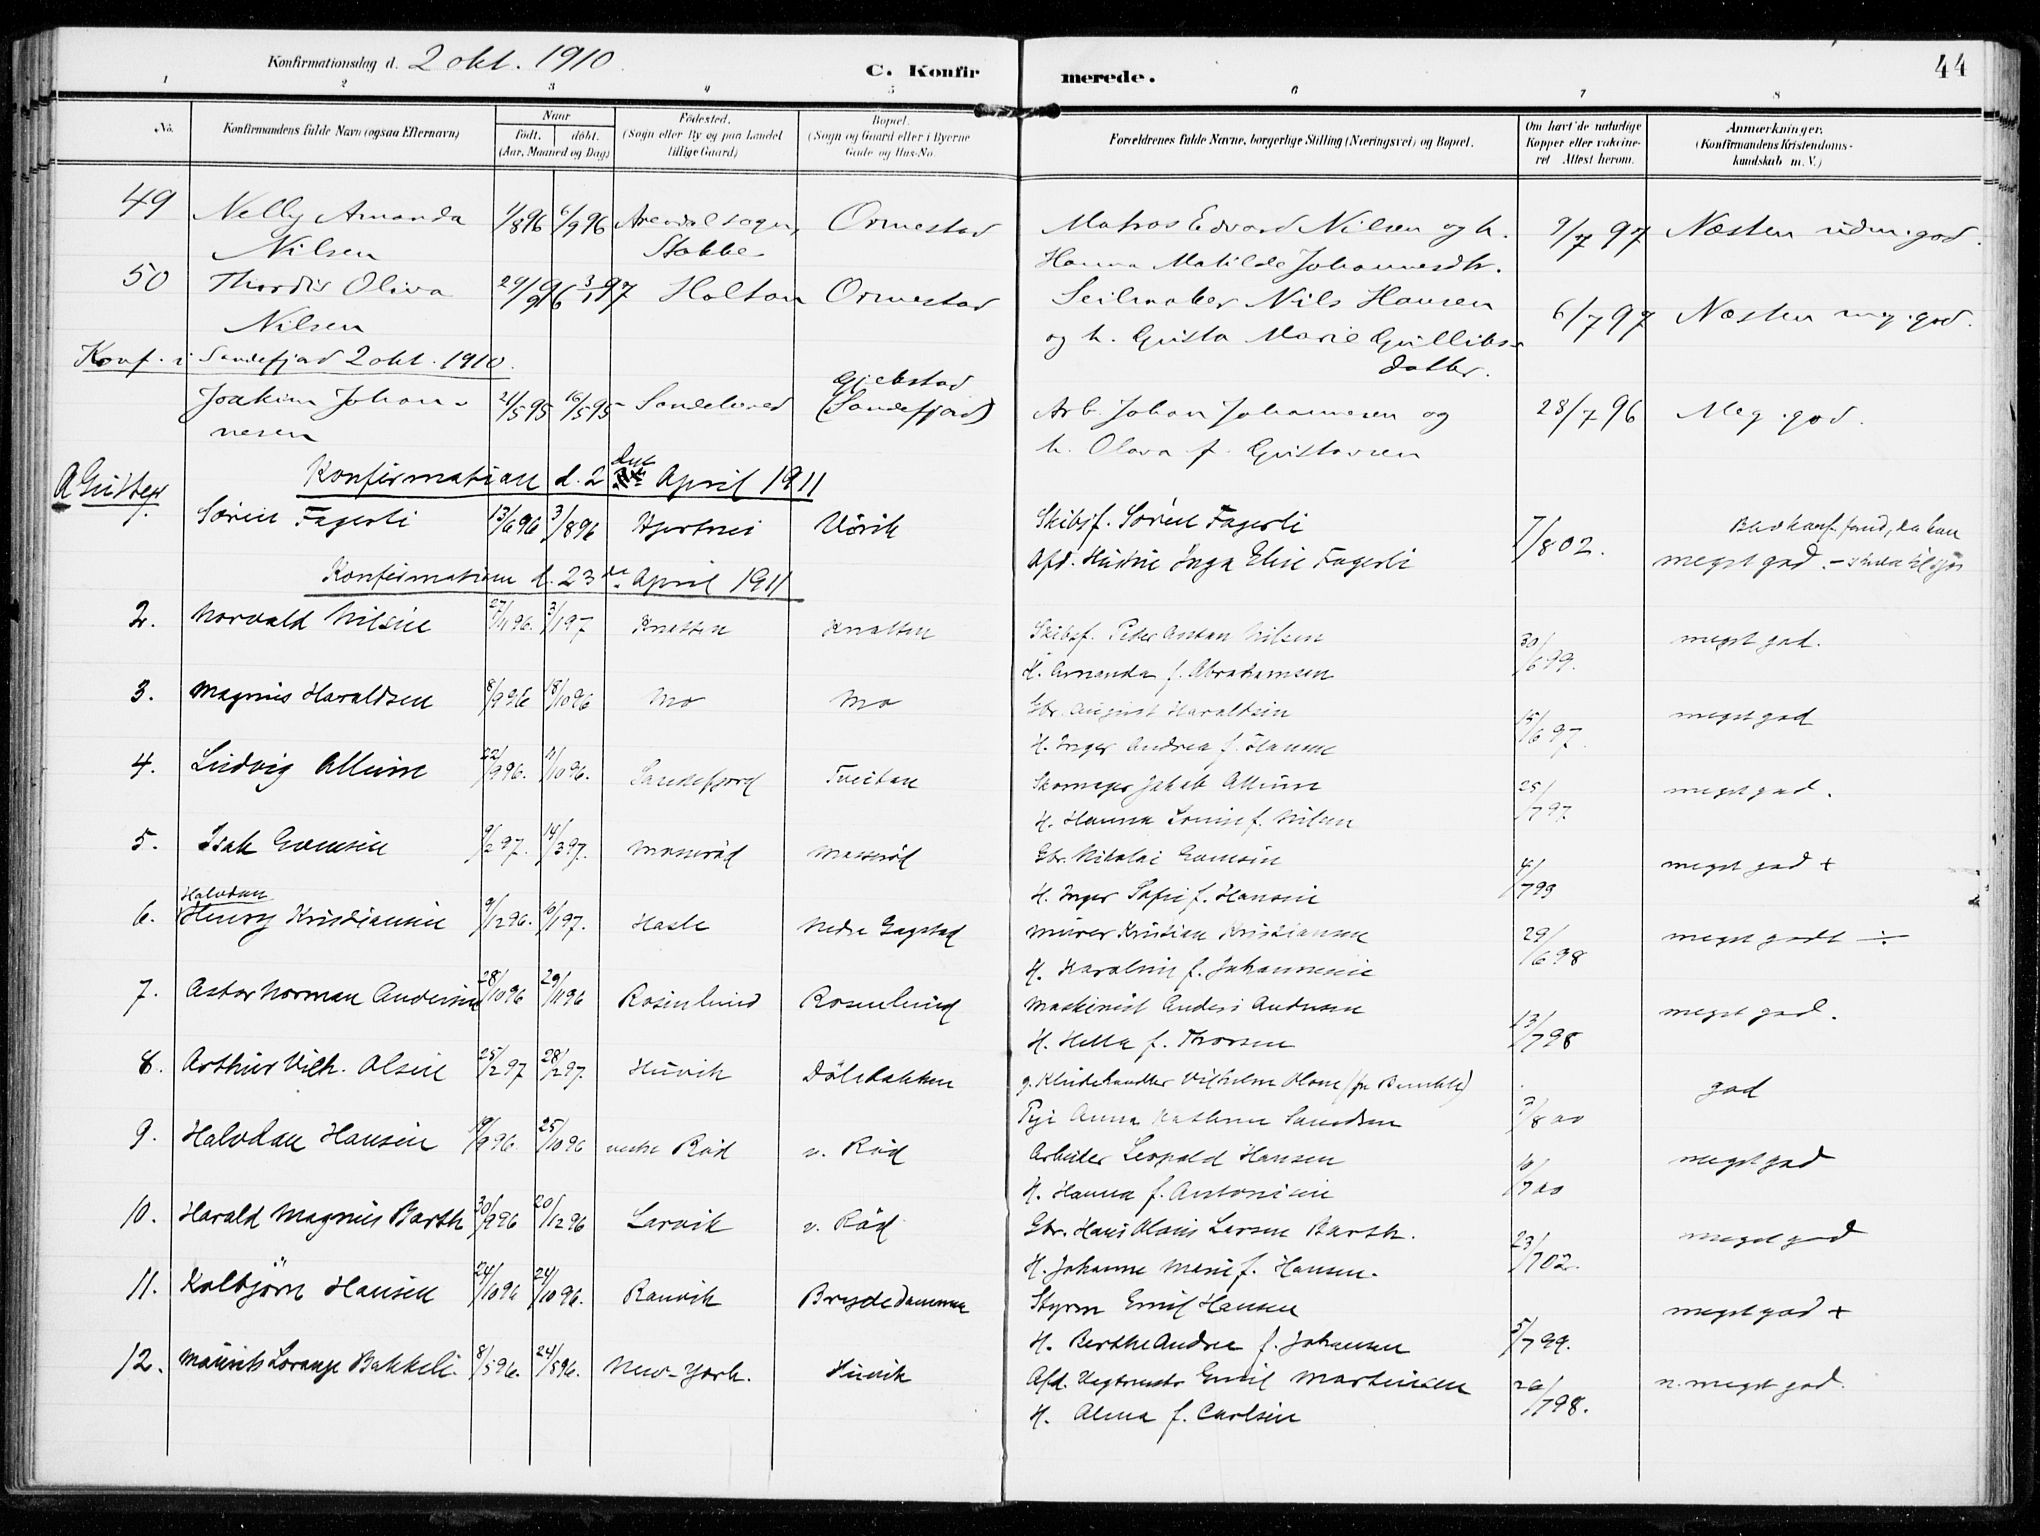 Konfirmationsdag d. 2 okt. 1910.
C. Konfirmerede.
44
1 2 3 4 5 6 7 8
No.
Konfirmandens fulde Navn (ogsaa Efternavn)
Naar
født. døbt.
(Aar, Maaned og Dag)
Fødested.
(Sogn eller By og paa Landet
tillige Gaard)
Bopæl.
(Sogn og Gaard eller i Byerne
Gade og Hus-No.
Forældrenes fulde Navne, borgerlige Stilling (Næringsvei) og Bopæl.
Om havt de naturlige
Kopper eller vakcine-
ret Attest herom.
Anmærkninger.
(Konfirmandens Kristendoms-
kundskab m. V.)
49 Nelly Amanda 1/8 96 6/9 96 Arendal sogn, Ormestad Matros Edvard Nilsen og h. 9/7 97 Næsten udm. god.
Nilsen Stokke Hanna Matilde Johannesdtr.
50 Thordis Oliva 29/9 96 3/1 97 Holtan Ormestad Seilmaker Nils Hansen 6/7 97 Næsten meg. god.
Nilsen og h. Gusta Marie Gulliks-
datter.
Konf. i Sandefjord 2 okt. 1910.
Joakim Johan- 21/5 95 16/5 95 Sandeherred Gjekstad
(Sandefjord) Arb. Johan Johannesen og 28/7 96 Meg. god.
nesen h. Olava f. Gustavsen
Konfirmation d. 2 den April 1911
A Gutter
1. Søren Fagerli 13/6 96 3/8 96 Hjertnes Vörik Skibsf. Sören Fagerli 7/8 02. Blev konf. forud, da han
Afd. Hustru Inga Elise Fagerli meget god. - skulde til sjøs
Konfirmation d. 23 de April 1911
2. Norvald Nilsen 27/11 96. 3/1 97 Knatten Knatten Skibsf. Peder Anton Nilsen 30/6 99. meget god.
H. Amanda f. Abrahamsen
3. Magnus Haraldsen 8/9 96 18/10 96 Mo Mo Gbr. August Haraldsen 15/6 97. meget god
H. Inger Andrea f. Hansen
4. Ludvig Allum 22/9 96. 11/10 96. Sandefjord Tveitan Skomager Jakob Allum 25/7 97 meget god.
H. Hanna Lovise f. Nilsen
5. Isak Evensen 9/2 97. 14/3 97. Masseröd Masseröd Gbr. Nikolai Evensen 4/7 99 meget god +
H. Inger Sofie f. Hansen
Halvdan
6. Henry Kristiansen 9/12 96. 10/1 97. Hasle Nedre Gogstad Murer Kristian Kristiansen 29/6 98 meget godt ÷
H. Karoline f. Johannesen
7. Astor Norman Andersen 28/10 96 29/11 96 Rosenlund Rosenlund Maskinist Anders Andersen 13/7 98 meget god.
H. Helta f. Thorsen
8. Arthur Vilh. Olsen 25/1 97 28/2 97. Huvik Dölebakken g. Kludehandler Vilhelm Olsen (fra Bamble) 7/8 00 god
Pige Anna Kathrine
9. Halvdan Hansen 19/9 96. 25/10 96 vestre Röd v. Röd Arbeider Leopold Hansen 10/7 00 meget god
H. Hanna f. Antonisen
10. Harald Magnus Barth 30/9 96 20/12 96 Larvik v. Röd Gbr. Hans Olaus Larsen Barth. 23/7 02. meget god
H. Johanne Marie f. Hansen.
11. Kolbjörn Hansen 24/10 96 24/10 96. Ranvik Brydedammen Styrm Emil Hansen 5/7 99. meget god +
H. Berthe Andrea f. Johansen
12. Maurits Lorange Bakkeli. 8/5 96. 24/5 96. New-York. Huvik Afd. Emil Martinsen 26/7 98. n. meget god.
H. Alma f. Carlsen